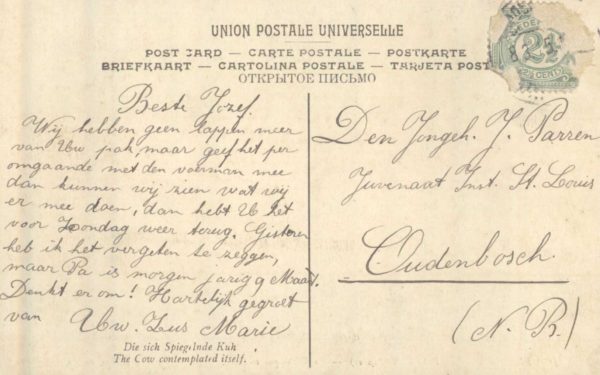 UNION POSTALE UNIVERSELLE
POST CARD — CARTE POSTALE — POSTKARTE
BRIEFKAART — CARTOLINA POSTALE — TARJETA POST
ОТКРЫТОЕ ПИСЬМО
2½
2½ CENT
Beste Jozef.
Wij hebben geen lappen meer
van Uw pak, maar geef het per
omgaande met den voerman mee
dan kunnen wij zien wat wij
er mee doen, dan hebt U het
voor Zondag weer terug. Gisteren
heb ik het vergeten te zeggen,
maar Pa is morgen jarig 9 Maart.
Denkt er om! Hartelijk gegroet
van Uw. Zus Marie
Die sich Spiegelnde Kuh
The Cow contemplated itself.
Den Jongeh. J. Parren
Juvenaat Inst. St. Louis
Oudenbosch.
(N. B.)